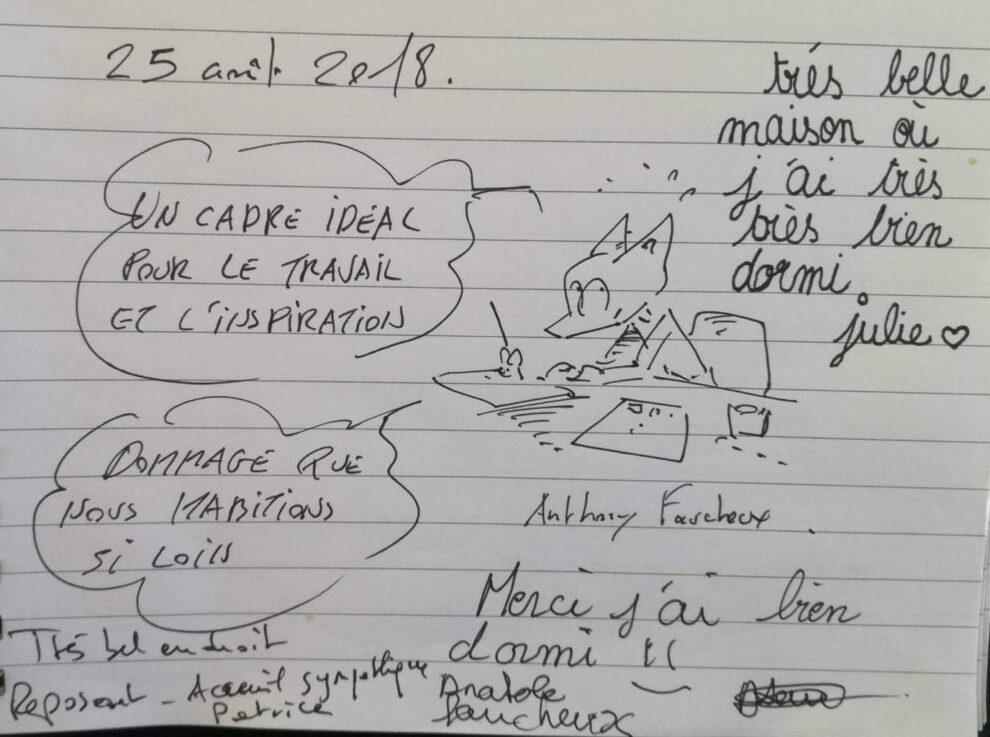 25 août 2018.
très belle
maison où
j'ai très
très bien
dormi.
julie ♡
UN CADRE IDÉAL
POUR LE TRAVAIL
ET L'INSPIRATION
DOMMAGE QUE
NOUS HABITIONS
SI LOIN
Anthony Faucheux.
Merci j'ai bien
dormi !!
Anatole
Faucheux
Très bel endroit
Reposant - Accueil sympathique